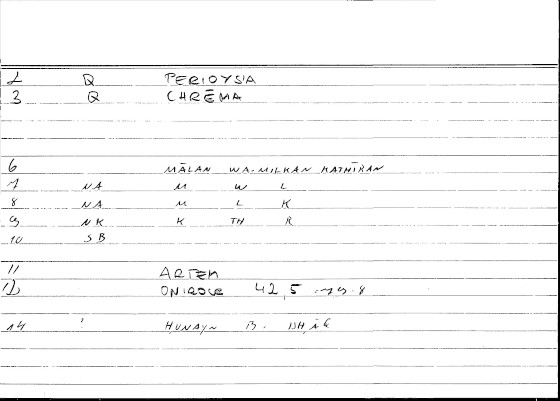 2 Q PERIOYSIA
3 Q CHRĒMA
6 MĀLAN WA-MILKAN KATHĪRAN
7 NA M W L
8 NA M L K
9 NK K TH R
10 SB
11 ARTEM
12 ONIROCR 42,5
14 ? ḤUNAYN B. ISḤĀQ